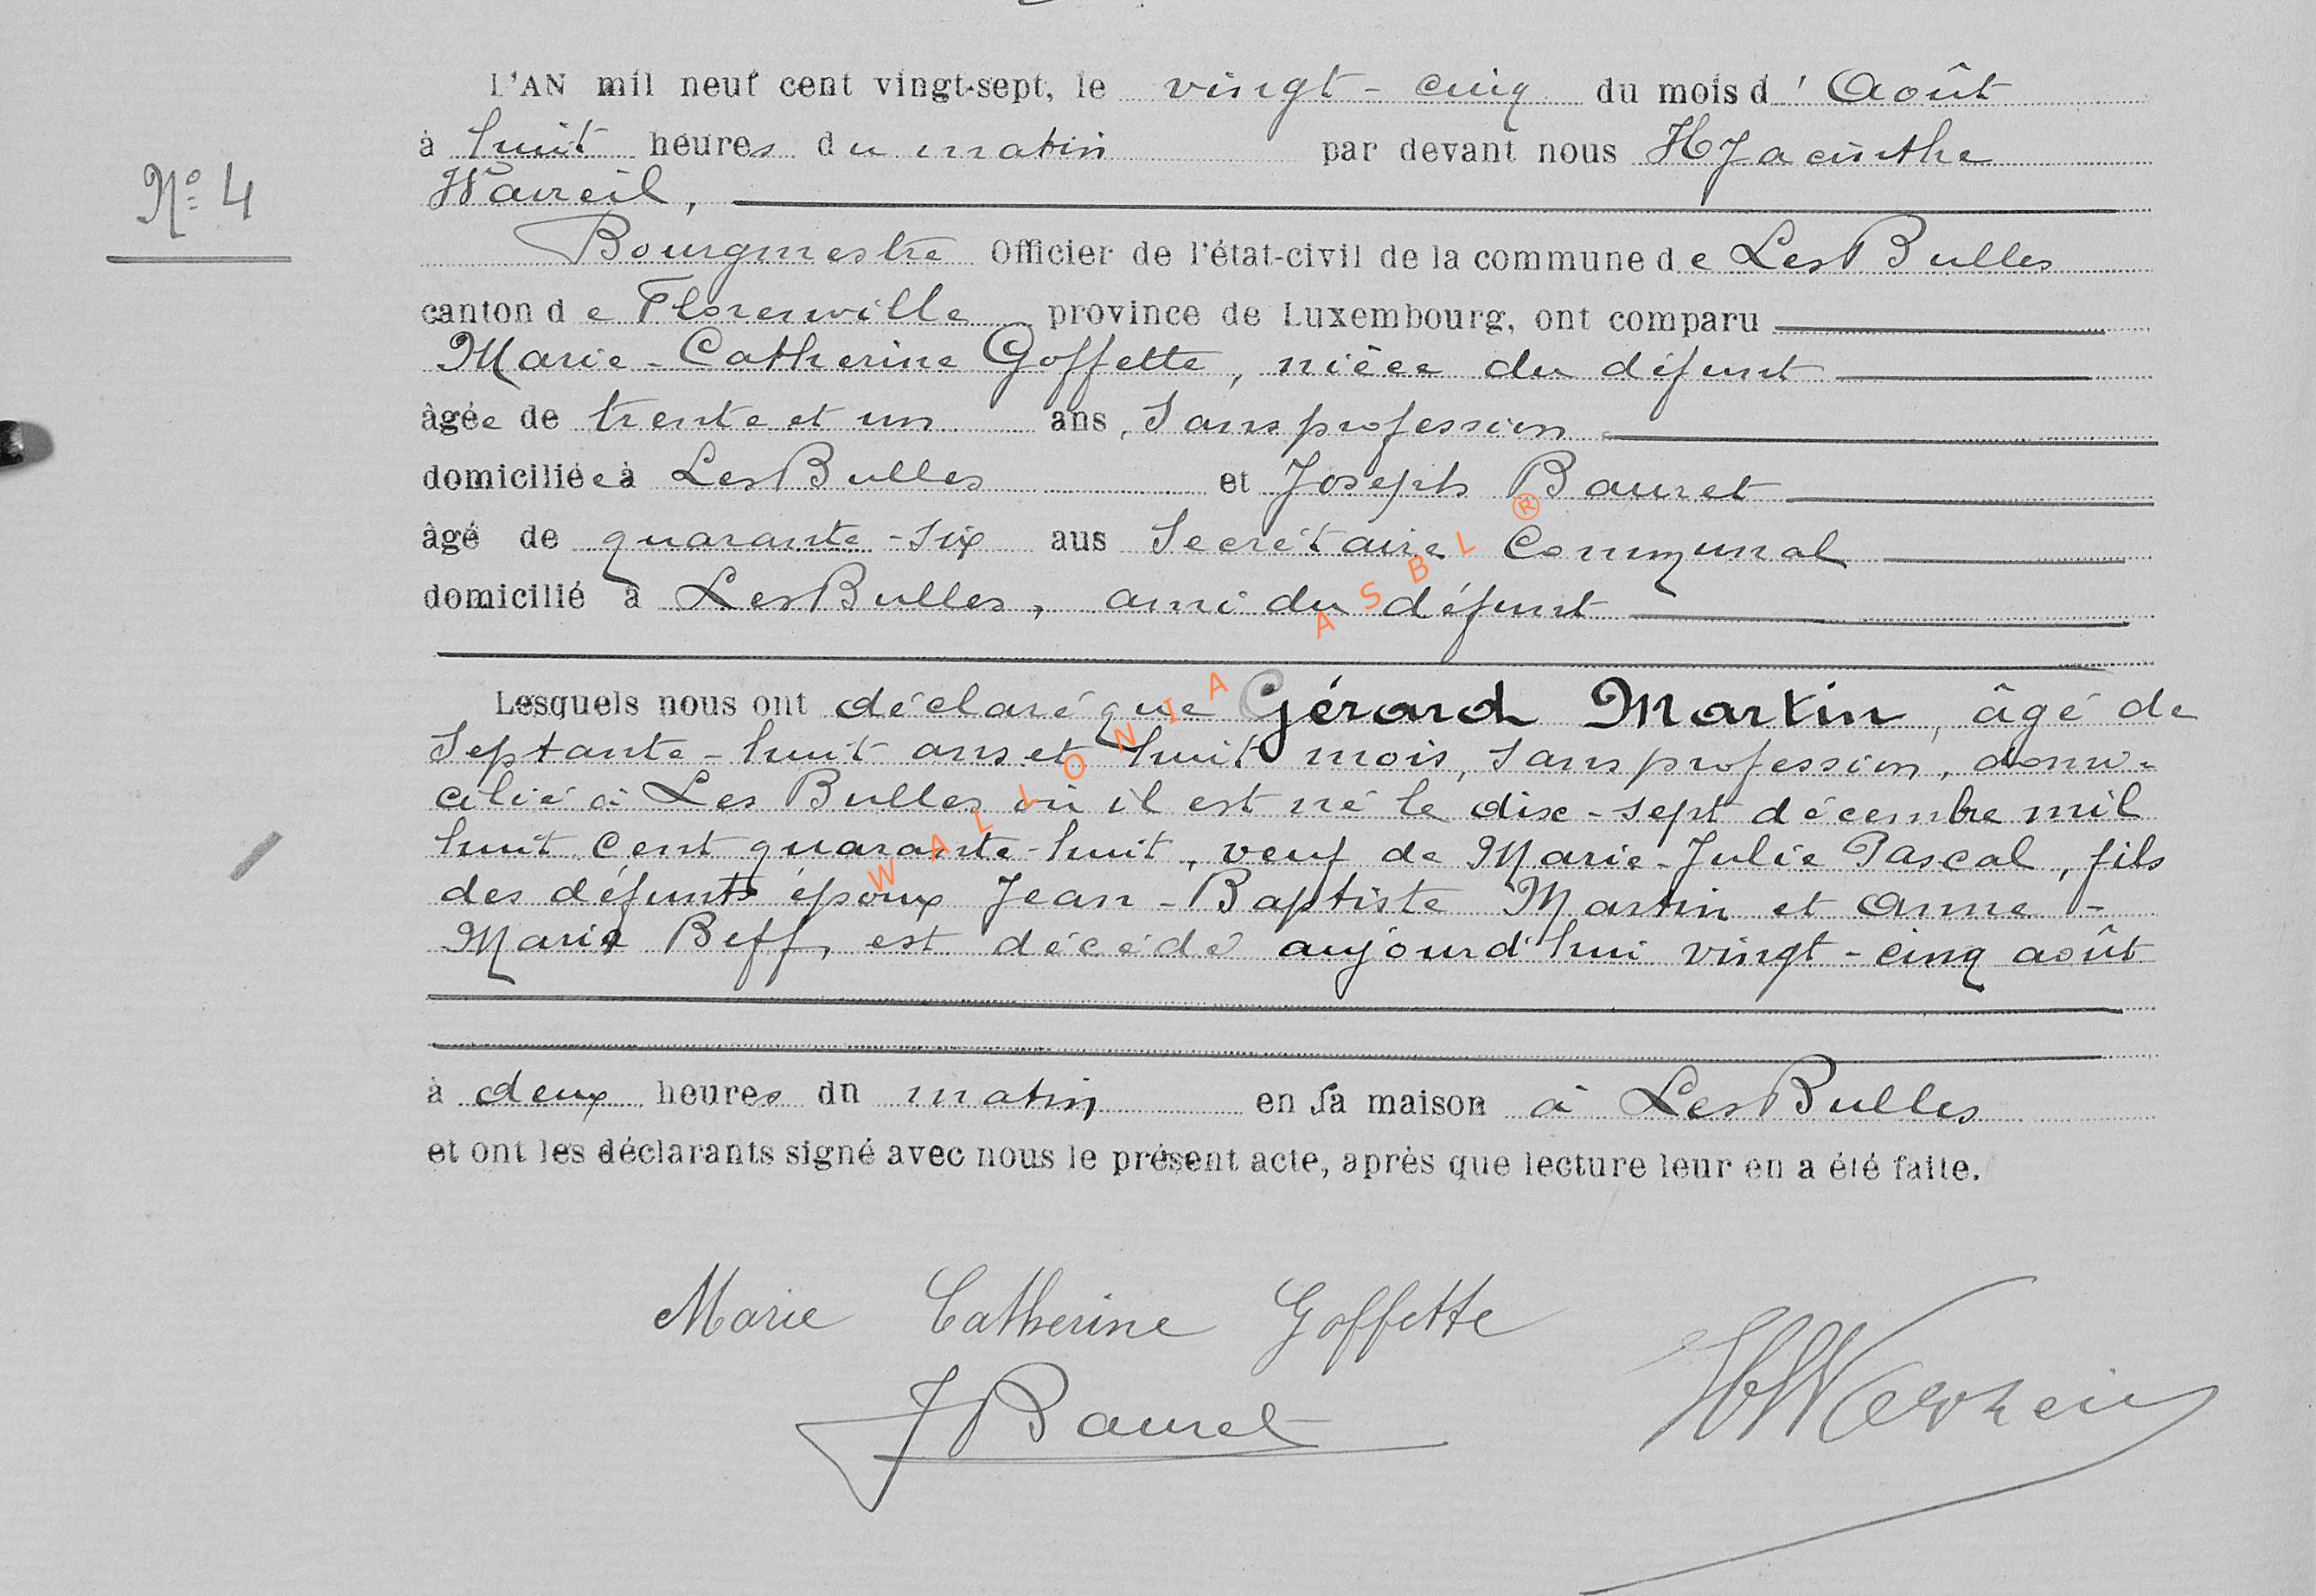 L'AN mil neuf cent vingt-sept, le vingt-cinq du mois d'Août
à huit heures du matin par devant nous Hyacinthe
N° 4
Bourgmestre Officier de l'état-civil de la commune de Les Bulles
canton de Florenville province de Luxembourg, ont comparu
Marie-Catherine Goffette, nièce du défunt
âgée de trente et un ans, Sans profession
domiciliée à Les Bulles et Joseph Bauret
âgé de quarante-six ans Secrétaire Communal
domicilié à Les Bulles, ami du défunt
Lesquels nous ont déclaré que Gérard Martin, âgé de
Septante-huit ans et huit mois, sans profession, domi-
cilié à Les Bulles où il est né le dix-sept décembre mil
huit cent quarante-huit, veuf de Marie-Julie Pascal, fils
des défunts époux Jean-Baptiste Martin et Anne-
Marie Beff, est décédé aujourd'hui vingt-cinq août
à deux heures du matin en sa maison à Les Bulles
et ont les déclarants signé avec nous le présent acte, après que lecture leur en a été faite.
Marie Catherine Goffette
J Bauret
WALLONIA ASBL ®